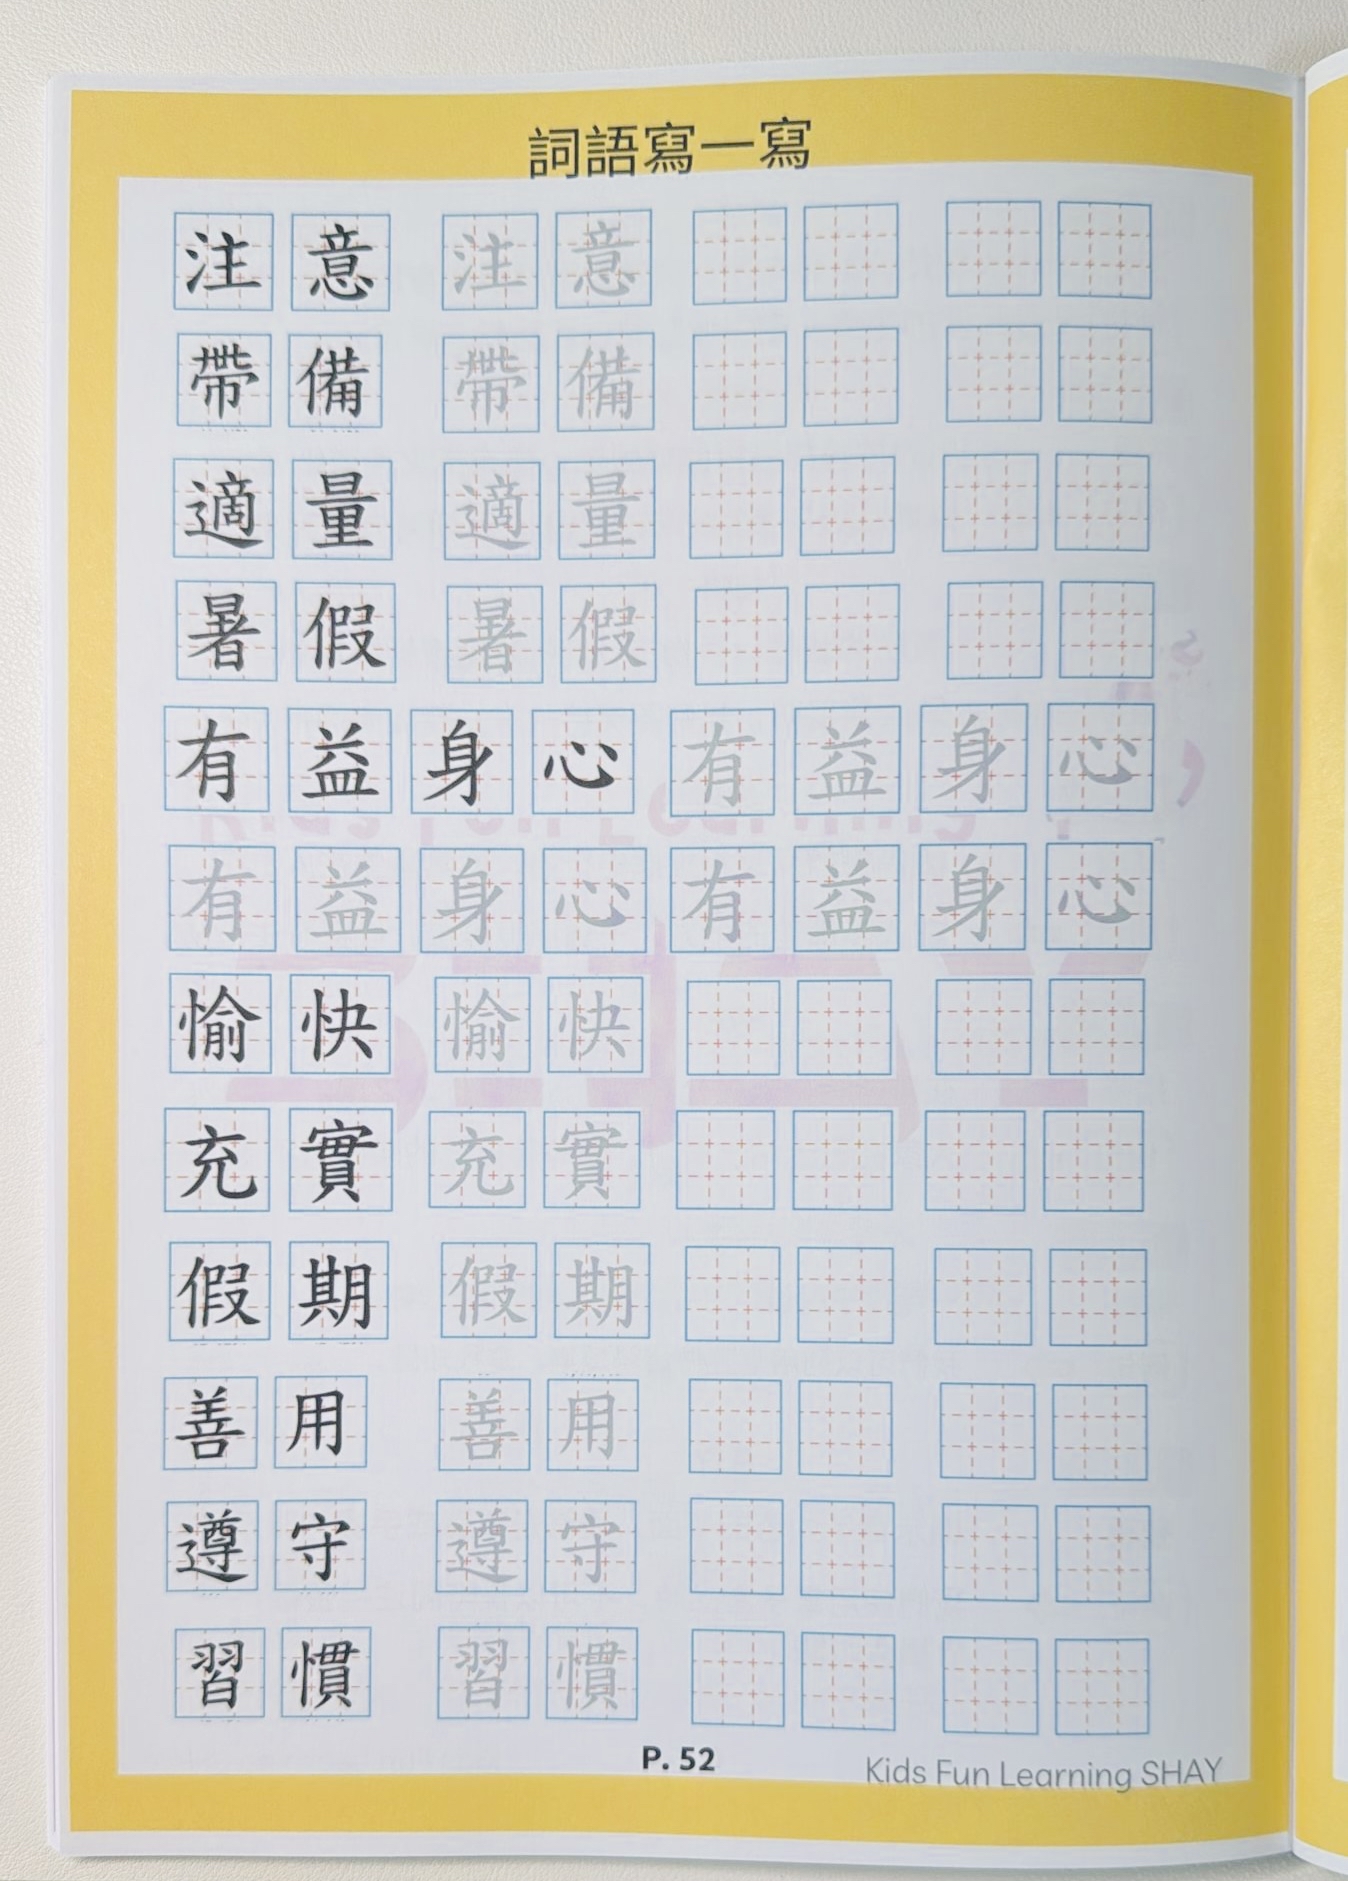 詞語寫一寫
注意 注意
帶備 帶備
適量 適量
暑假 暑假
有益身心 有益身心
有益身心 有益身心
愉快 愉快
充實 充實
假期 假期
善用 善用
遵守 遵守
習慣 習慣
P. 52
Kids Fun Learning SHAY